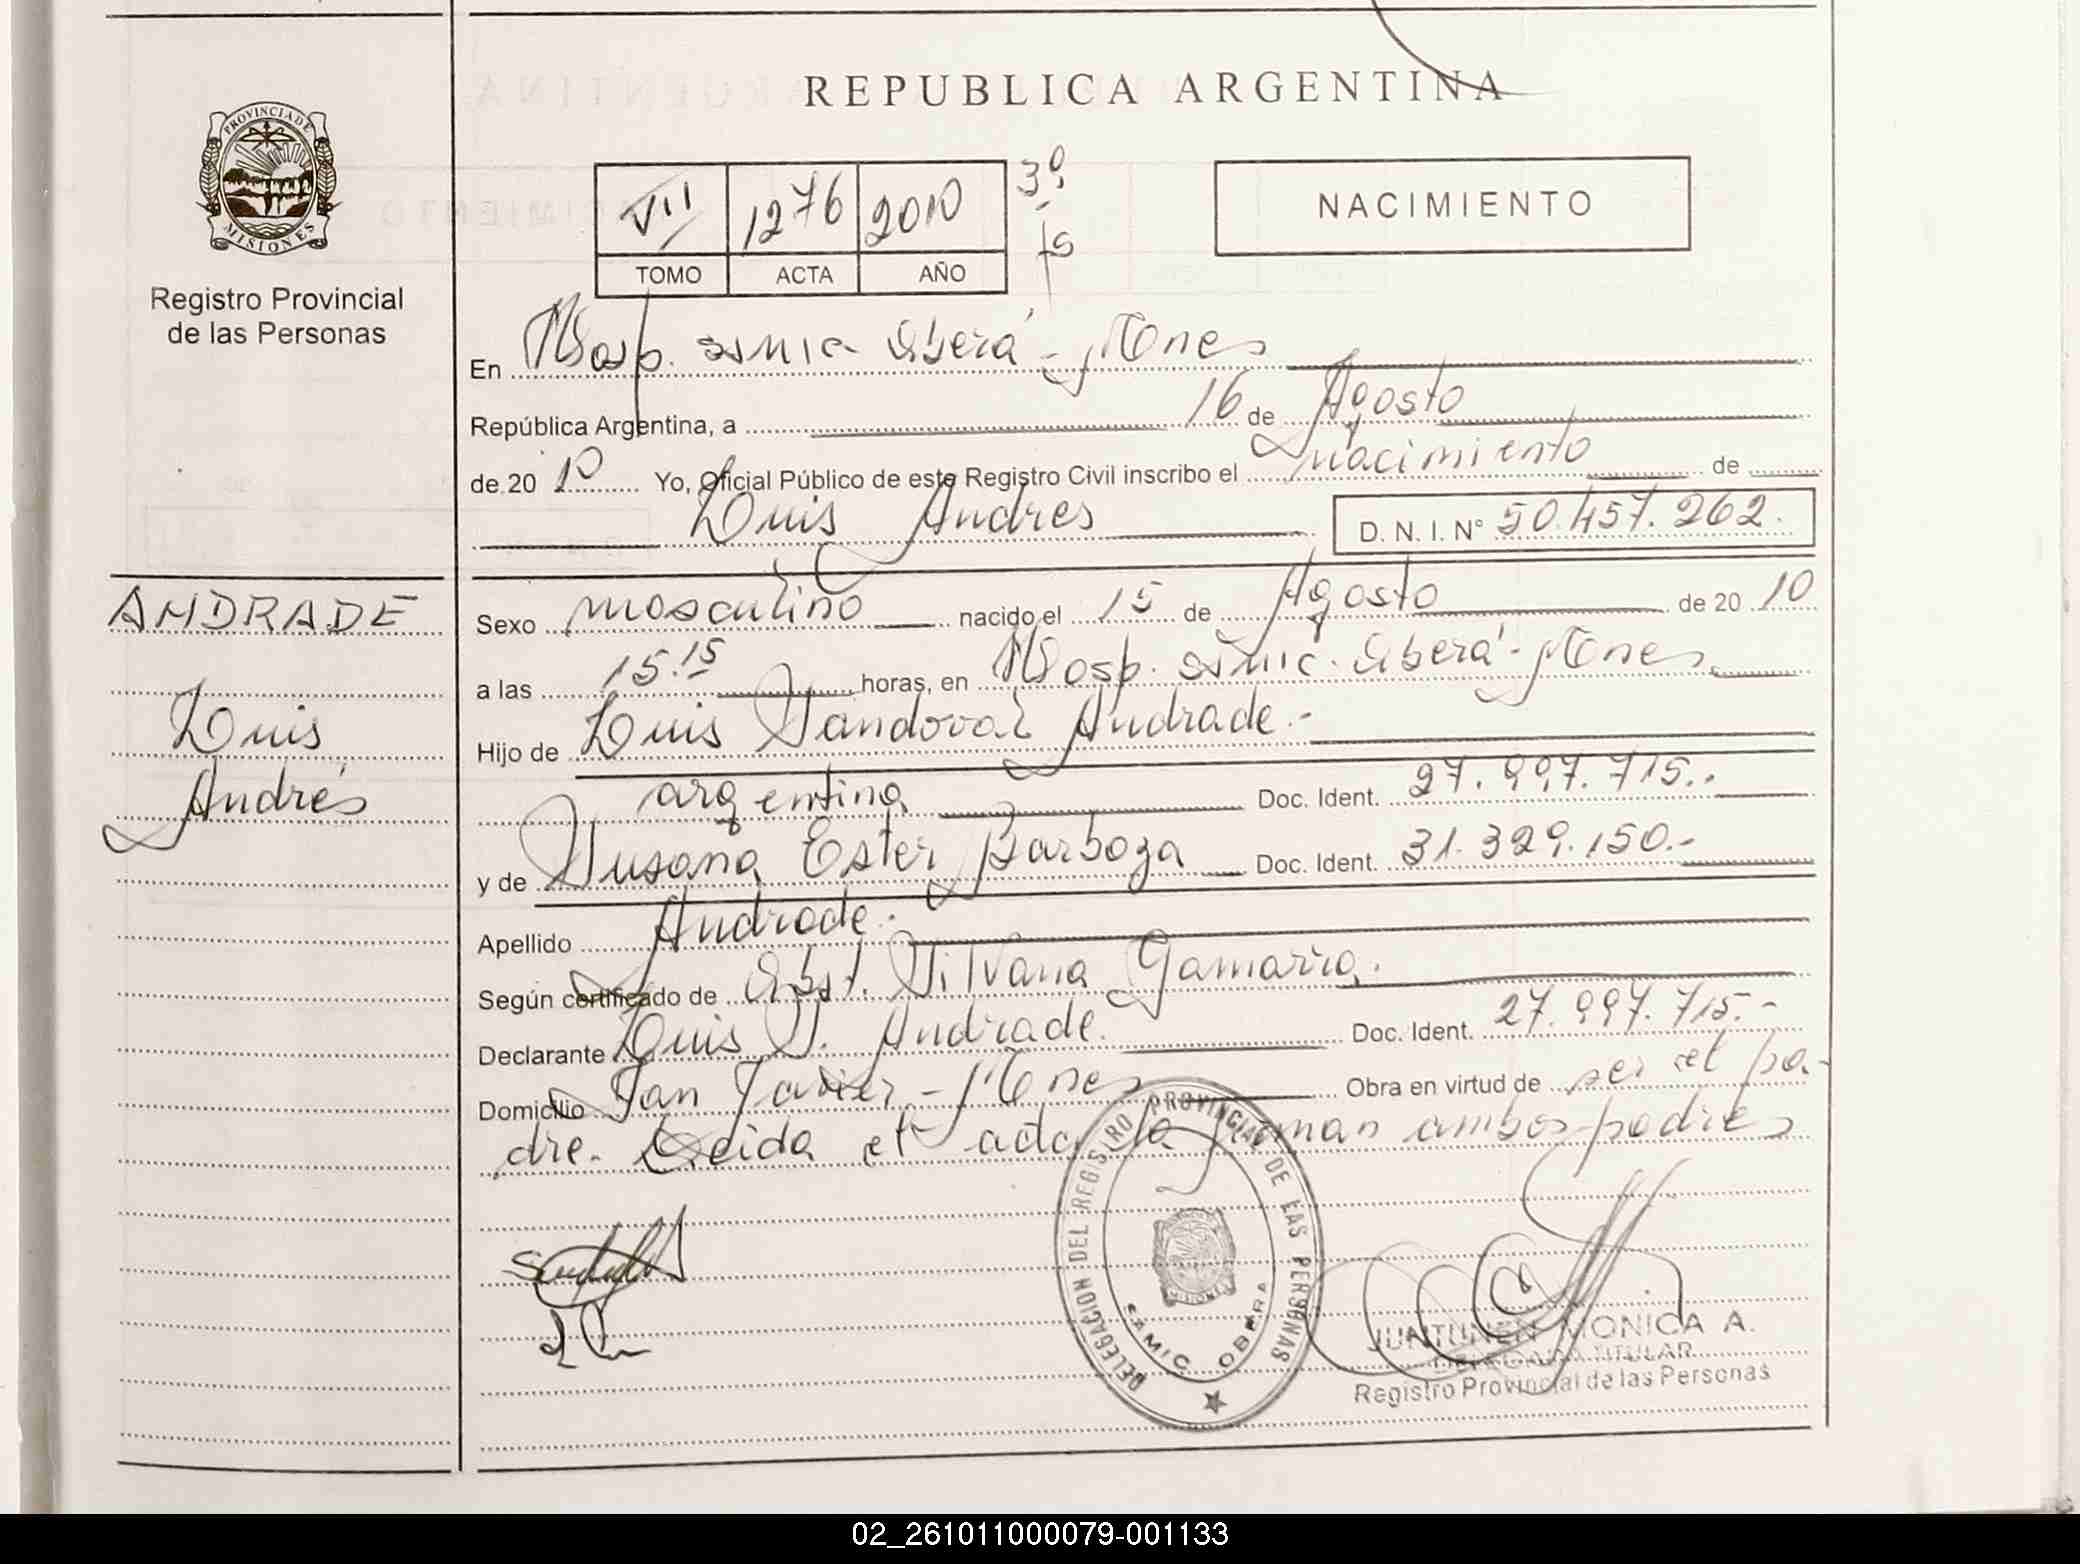 REPUBLICA ARGENTINA
PROVINCIA DE
MISIONES
Registro Provincial
de las Personas
VII 1276 2010 3º
TOMO ACTA AÑO
NACIMIENTO
En Hosp. SAMIC Oberá - Mones
República Argentina, a 16 de Agosto
de 2010 Yo, Oficial Público de este Registro Civil inscribo el nacimiento de
Luis Andres D. N. I. Nº 50.457.262.
ANDRADE
Luis
Andrés
Sexo masculino nacido el 15 de Agosto de 2010
a las 15.15 horas, en Hosp. SAMIC. Oberá - Mones
Hijo de Luis Sandoval Andrade.-
argentina Doc. Ident. 27.997.715.-
y de Susana Ester Barboza Doc. Ident. 31.329.150.-
Apellido Andrade.
Según certificado de Obst. Silvana Gamarra.
Declarante Luis S. Andrade. Doc. Ident. 27.997.715.-
Domicilio San Javier - Mones Obra en virtud de ser el pa-
dre. Leida el acta la firman ambos padres
DELEGACION DEL REGISTRO PROVINCIAL DE LAS PERSONAS
SAMIC. OBERA
MISIONES
JUNTUNEN MONICA A.
DELEGADA TITULAR
Registro Provincial de las Personas
02_261011000079-001133